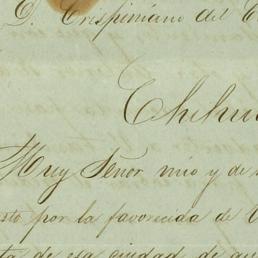 D. Crispiniano del
Chihu
Muy Señor mio y de
sto por la favorecida de V
ta de esa ciudad de